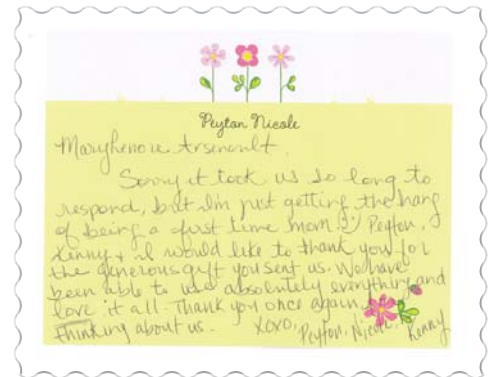 Peyton Nicole
Arsenault,
Sorry it took us so long to
respond, but I'm just getting the hang
of being a first time mom! :) Peyton,
Kenny & I would like to thank you for
the generous gift you sent us. We have
been able to use absolutely everything and
love it all. Thank you once again
thinking about us. XOXO, Peyton, Nicole, Kenny